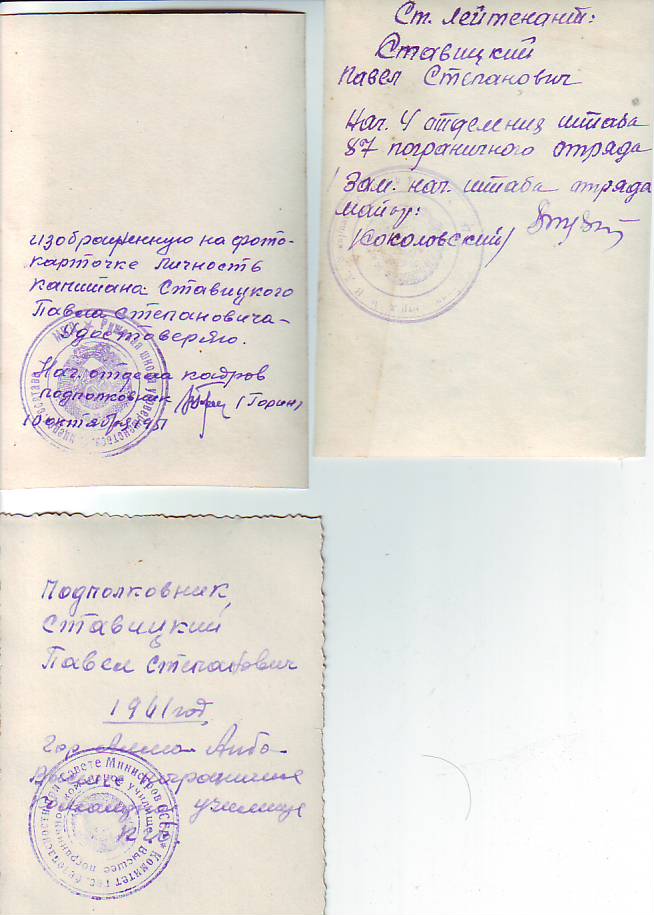 изображенную на фото-
карточке личность
капитана Ставицкого
Павла Степановича –
удостоверяю.
Нач. отдела кадров
подполковник (Горин)
10 октября 1951
Ст. лейтенант:
Ставицкий
Павел Степанович
Нач. 4 отделения штаба
87 пограничного отряда
Зам. нач. штаба отряда
майор:
/Соколовский/
Подполковник
Ставицкий
Павел Степанович
1961 год,
Гор. Алма-Ата
Высшее пограничное
училище
КГБ
Комитет гос. безопасности при Совете Министров СССР
Высшее пограничное командное училище